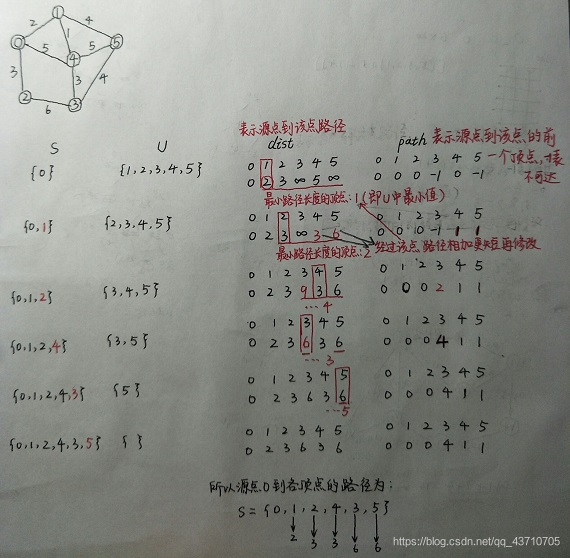 1
2
4
1
0
5
4
5
5
3
3
4
2
6
3
表示源点到该点路径
S
U
dist
path 表示源点到该点的前
一个顶点,-1表
不可达
{0}
{1,2,3,4,5}
0 1 2 3 4 5
0 2 3 ∞ 5 ∞
0 1 2 3 4 5
0 0 0 -1 0 -1
最小路径长度的顶点:1(即U中最小值)
{0,1}
{2,3,4,5}
0 1 2 3 4 5
0 2 3 ∞ 3 6
0 1 2 3 4 5
0 0 0 -1 1 1
最小路径长度的顶点:2
经过该点,路径相加更短再修改
{0,1,2}
{3,4,5}
0 1 2 3 4 5
0 2 3 9 3 6
0 1 2 3 4 5
0 0 0 2 1 1
… 4
{0,1,2,4}
{3,5}
0 1 2 3 4 5
0 2 3 6 3 6
0 1 2 3 4 5
0 0 0 4 1 1
… 3
{0,1,2,4,3}
{5}
0 1 2 3 4 5
0 2 3 6 3 6
0 1 2 3 4 5
0 0 0 4 1 1
…5
{0,1,2,4,3,5}
{ }
0 1 2 3 4 5
0 2 3 6 3 6
0 1 2 3 4 5
0 0 0 4 1 1
所以源点0到各顶点的路径为:
S={0,1,2,4,3,5}
2 3 3 6 6
https://blog.csdn.net/qq_43710705